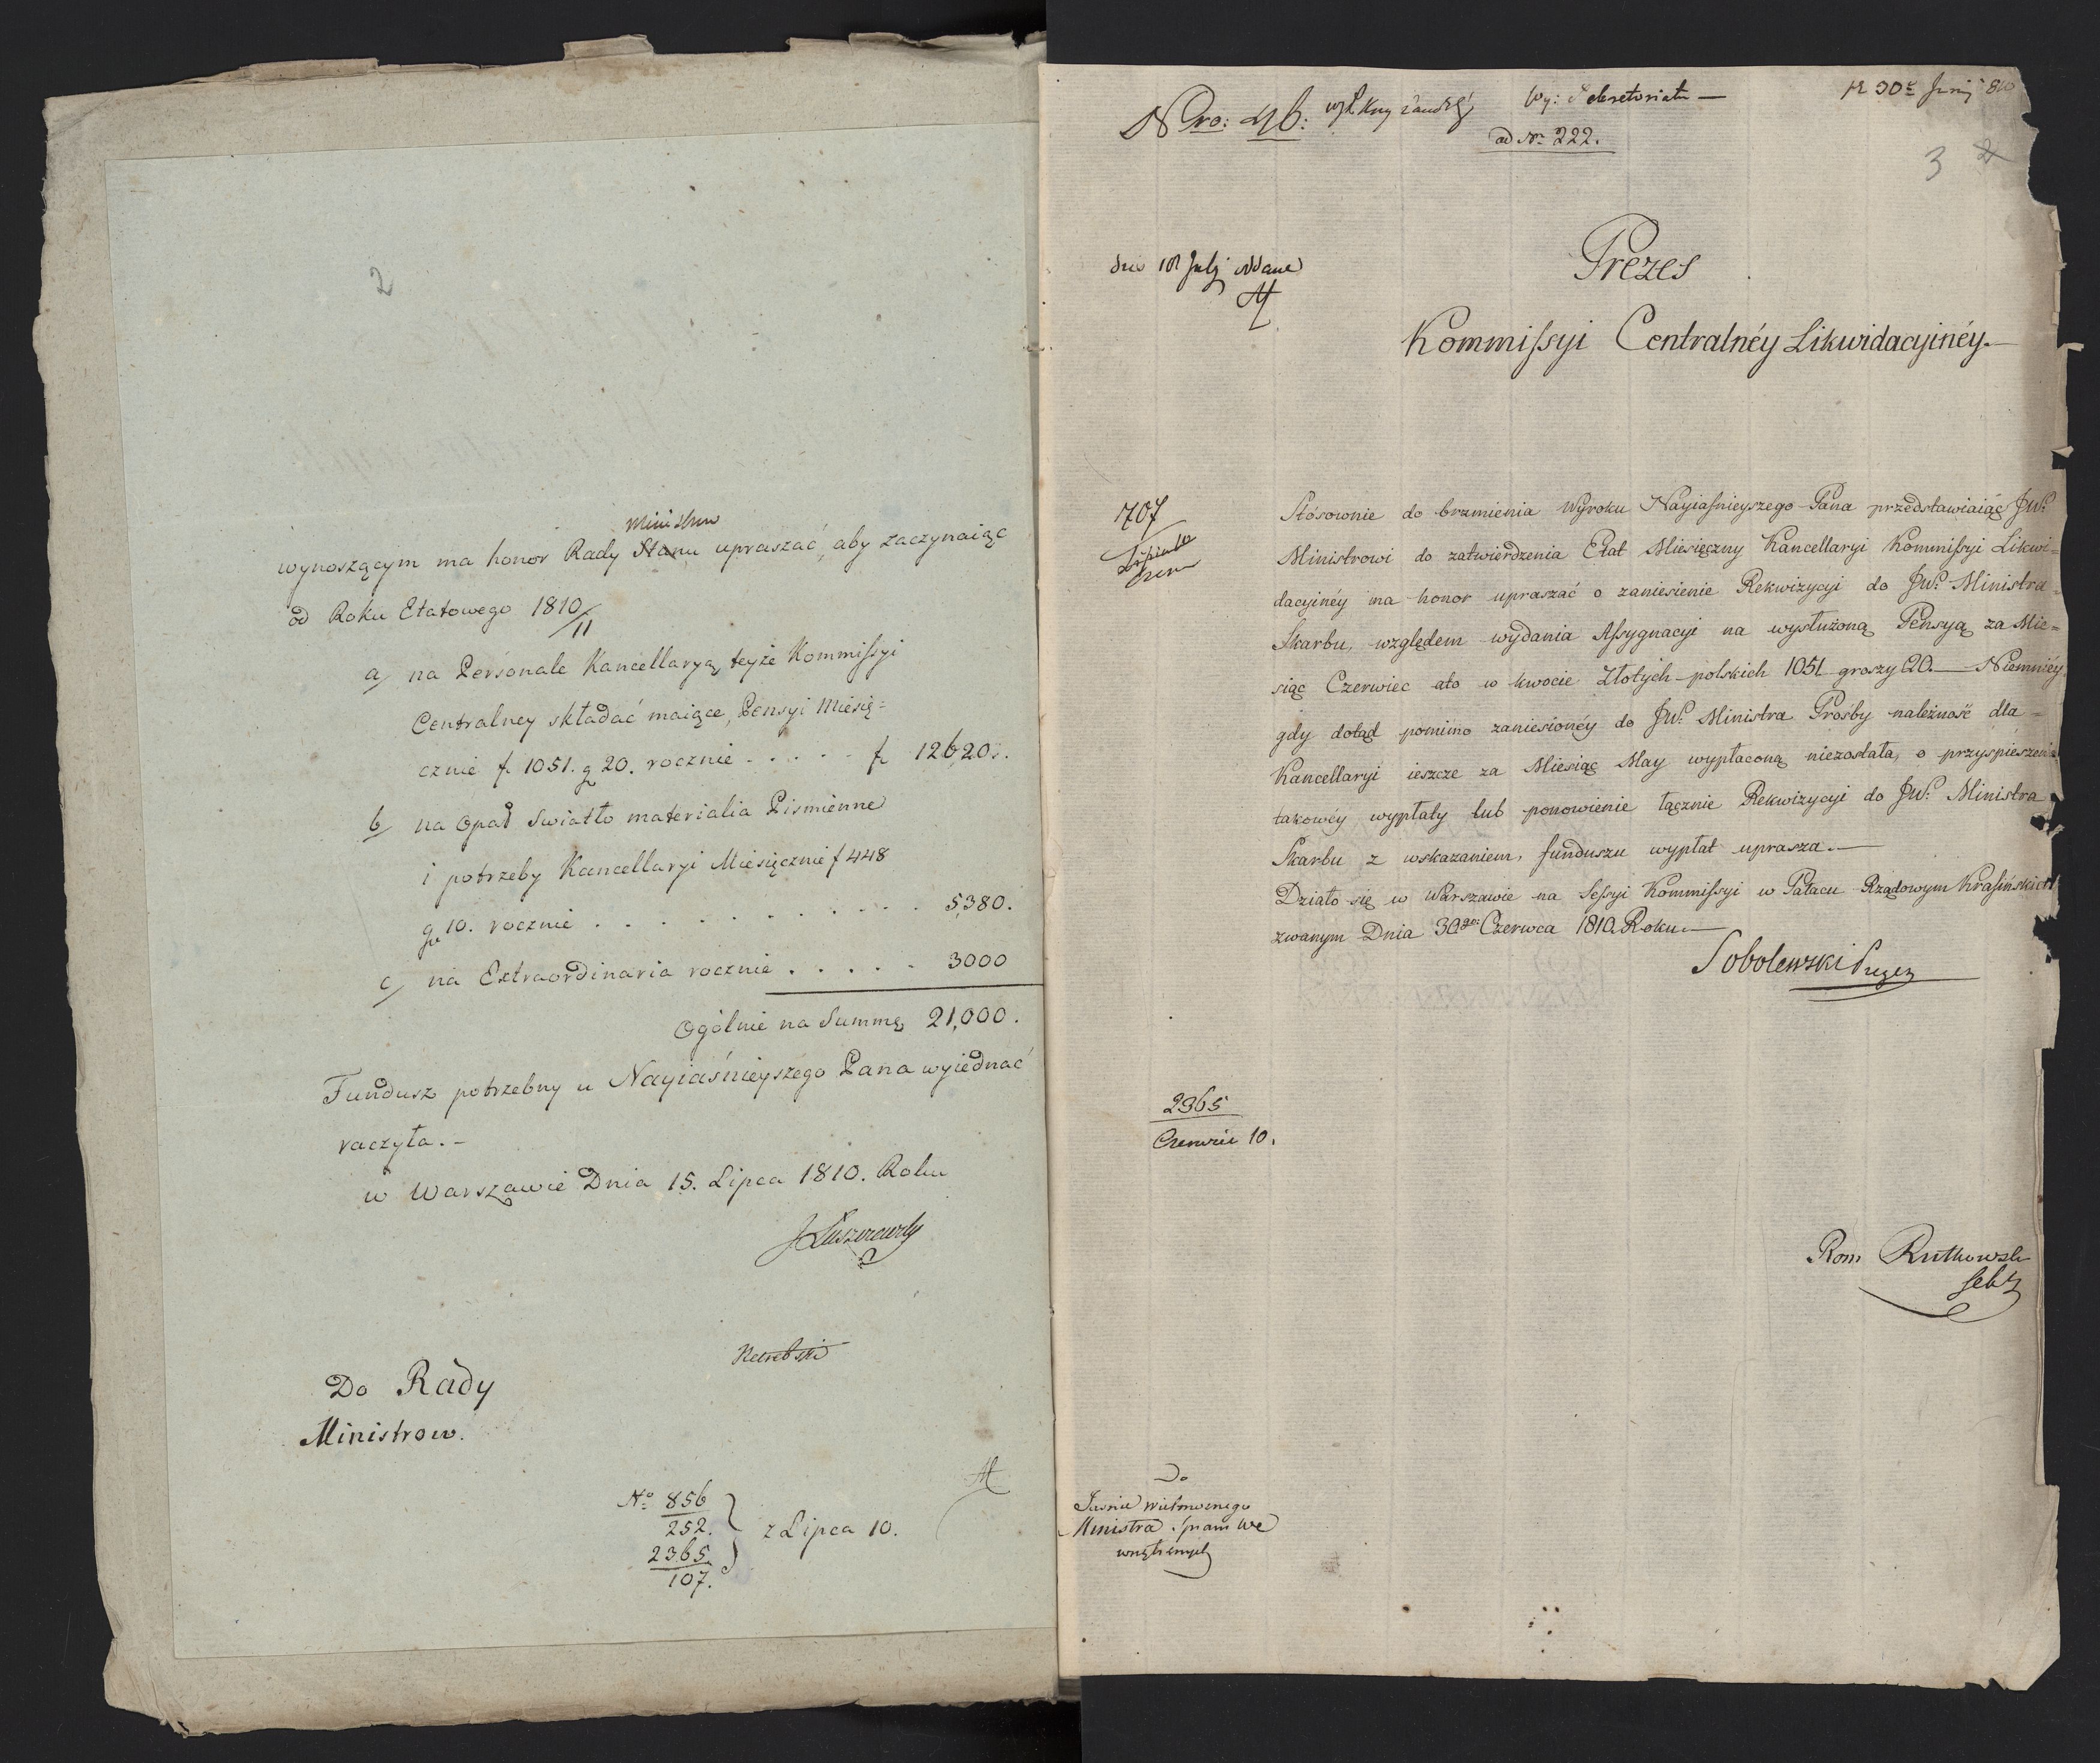 2
Ministrow
wynoszącym ma honor Rady Stanu upraszać, aby zaczynaiąc
od Roku Etatowego 1810/11
a/ na Personale Kancellaryą teyże Kommissyi
Centralney składać maiące, Pensyi Miesię=
cznie f. 1051. g 20. rocznie . . . . . f 12620.
b/ na Opał Swiatło materialia Pismienne
i potrzeby Kancellaryi Miesięcznie f 448
g 10. rocznie . . . . . . . . . . . 5,380.
c/ na Extraordinaria rocznie . . . . . 3000
Ogólnie na Summę 21,000.
Fundusz potrzebny u Nayiaśnieyszego Pana wyiednać
raczyła. -
w Warszawie Dnia 15. Lipca 1810. Roku
J Łuszczewski
Do Rady
Ministrow.
No 856
252.
2365
107.
z Lipca 10.
NPro: 46:
Wy: Sekretoriatu —
ad Nr 222.
30 Junij 810
3 2
dnia 18 July oddane
Prezes
Kommissyi Centralnéy Likwidacyinéy.—
707
Stósownie do brzmienia Wyroku Nayiaśnieyszego Pana przedstawiaiąc JW.
Ministrowi do zatwierdzenia Etat Miesięczny Kancellaryi Kommissyi Likwi=
dacyinéy ma honor upraszać o zaniesienie Rekwizycyi do JW. Ministra
Skarbu, względem wydania Assygnacyi na wysłużoną Pensyą za Mie=
siąc Czerwiec ato w kwocie Złotych-polskich 1051 groszy 20.— Niemniéy
gdy dotąd pomimo zaniesionéy do JW. Ministra Prośby należność dla
Kancellaryi ieszcze za Miesiąc May wypłaconą niezostała, o przyspieszenie
takowéy wypłaty lub ponowienie łącznie Rekwizycyi do JW. Ministra
Skarbu z wskazaniem, funduszu wypłat uprasza.—
Działo się w Warszawie na Sessyi Kommissyi w Pałacu Rządowym Krasińskich
zwanym Dnia 30go Czerwca 1810. Roku.—
Sobolewski Prezes
2365
Czerwiec 10.
Rom Rutkowski
Sekr
Do
Jasnie Wielmoznego
Ministra Spraw We
wnętrznych